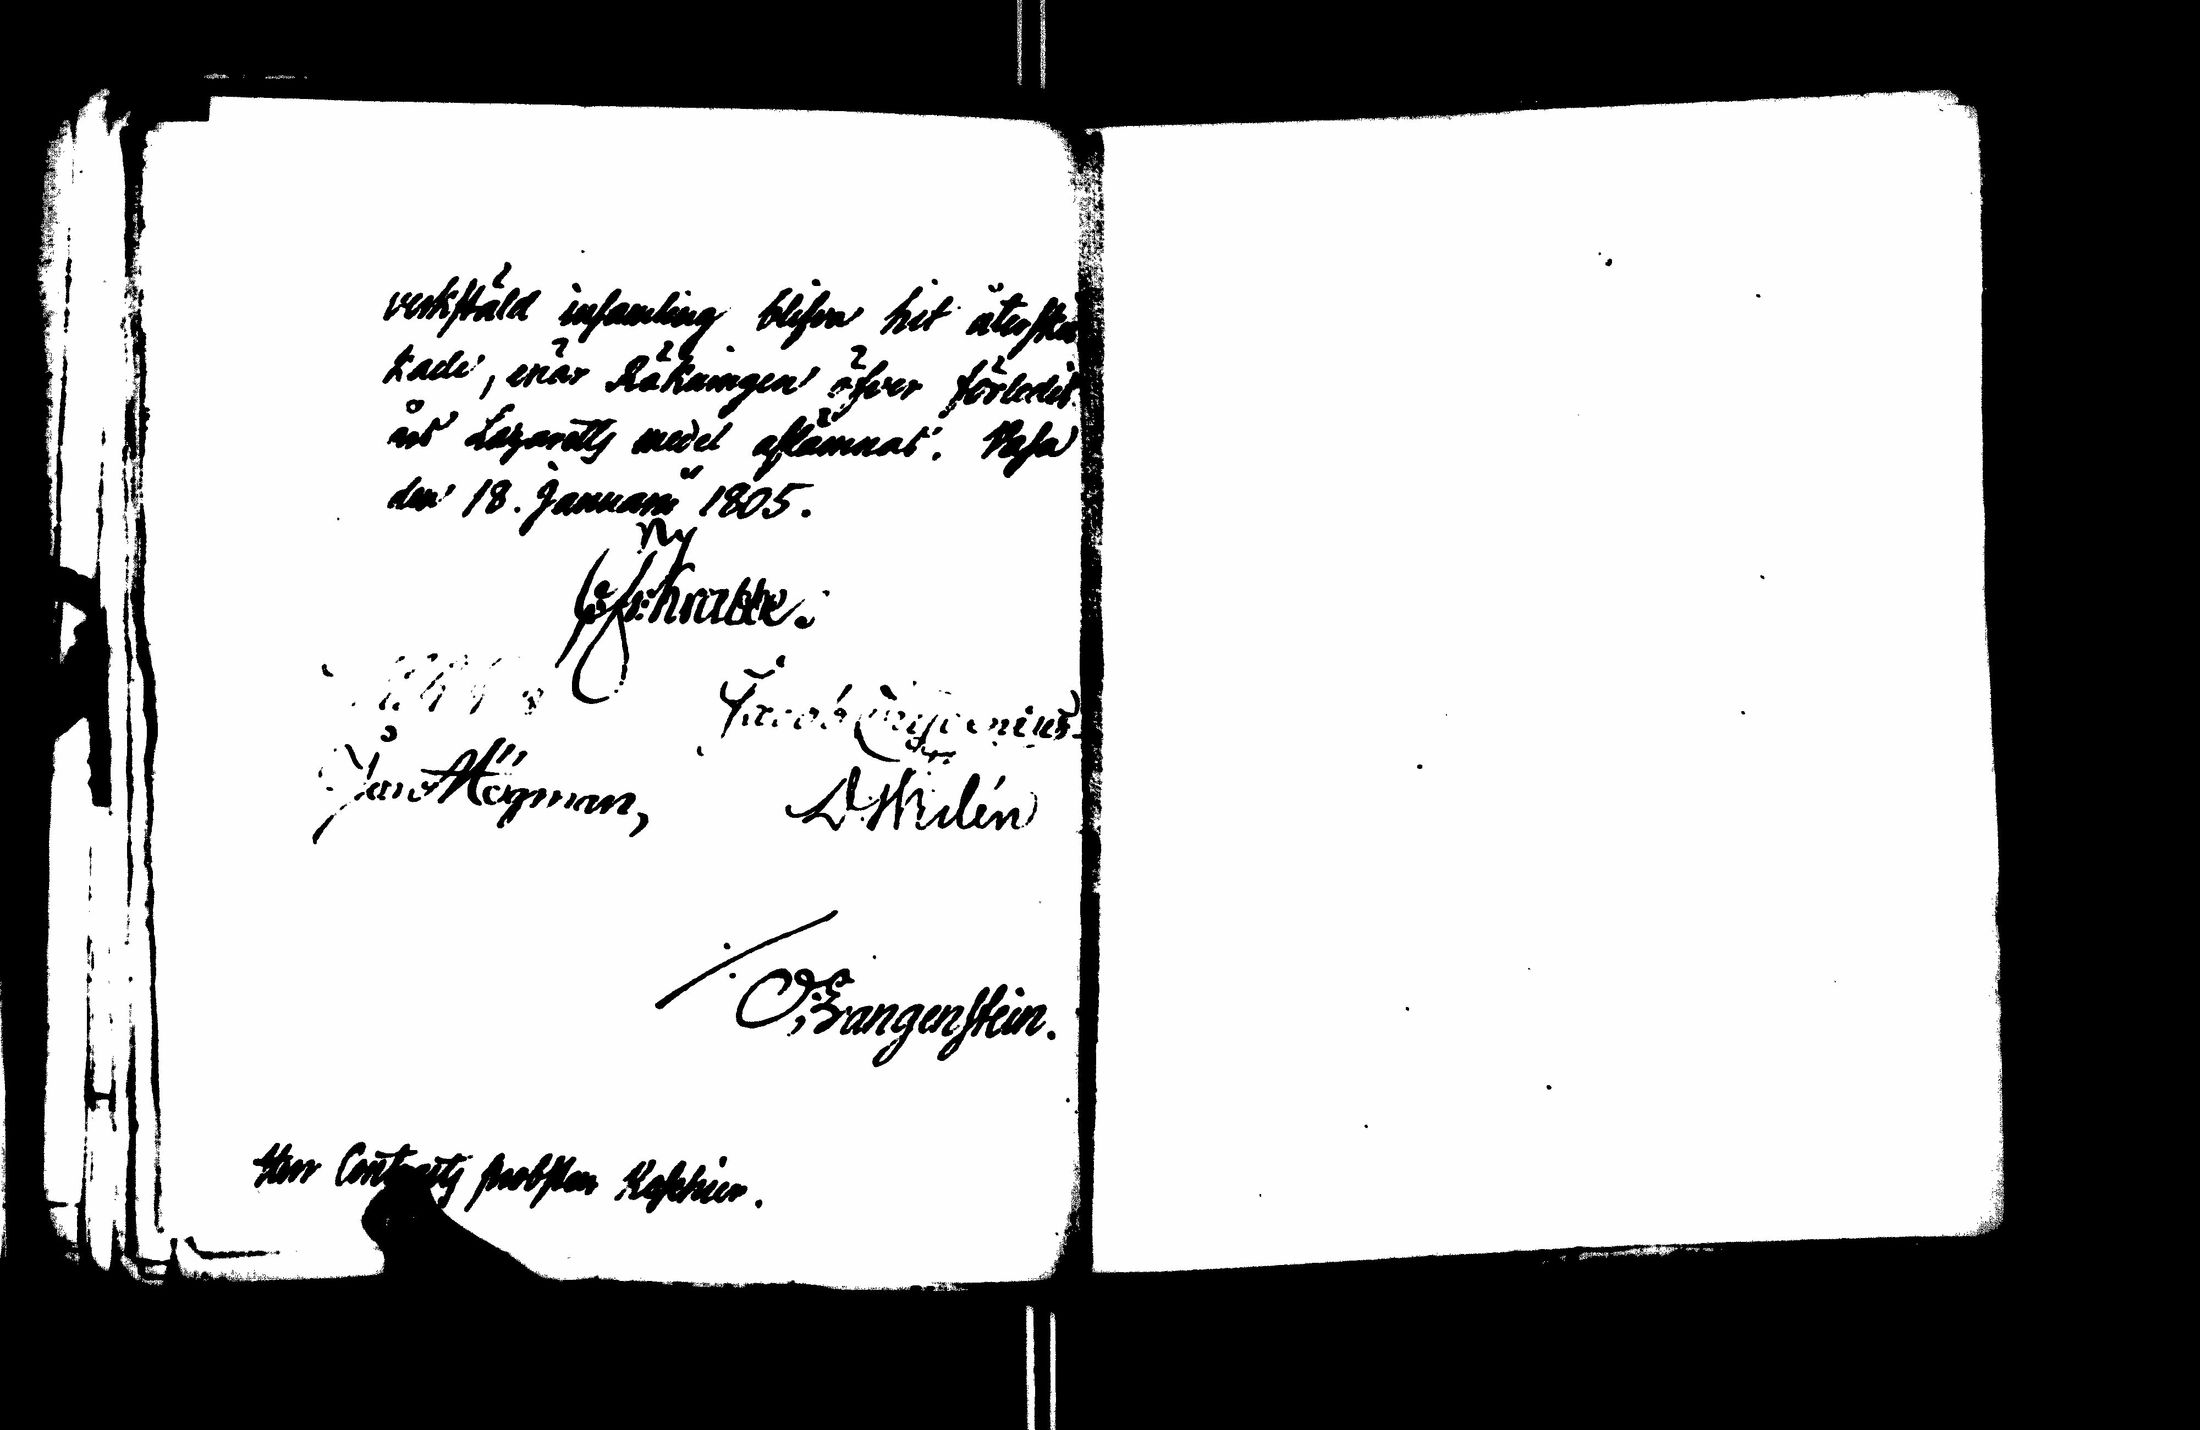 verkstäld insamling blifva hit återstec
kade, enär Räkningen öfver förledit
års Lazaretts medel aflämnas. Vasa
den 18. Januarii 1805.
Krabbe.
Jacob
Högman,
D Widén
O, Zrangenstein.
Herr Contracts probsten